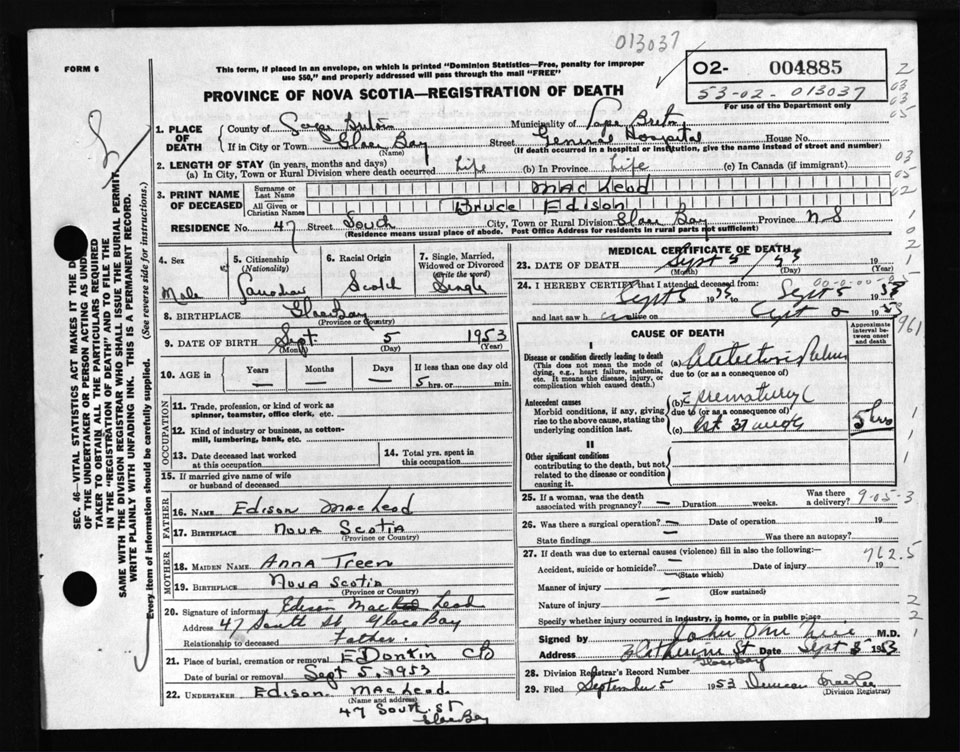 013037
FORM 6
This form, if placed in an envelope, on which is printed "Dominion Statistics—Free, penalty for improper
use $50," and properly addressed will pass through the mail "FREE"
02- 004885
53-02-013037
For use of the Department only
PROVINCE OF NOVA SCOTIA—REGISTRATION OF DEATH
1. PLACE OF DEATH
County of Cape Breton Municipality of Cape Breton
If in City or Town Glace Bay Street General Hospital House No.
(Name) (If death occurred in a hospital or institution, give the name instead of street and number)
2. LENGTH OF STAY (in years, months and days)
(a) In City, Town or Rural Division where death occurred Life (b) In Province Life (c) In Canada (if immigrant)
3. PRINT NAME OF DECEASED
Surname or Last Name Mac Leod
All Given or Christian Names Bruce Edison
RESIDENCE No. 47 Street South City, Town or Rural Division Glace Bay Province N-S
(Residence means usual place of abode. Post Office Address for residents in rural parts not sufficient)
4. Sex Male
5. Citizenship (Nationality) Canadian
6. Racial Origin Scotch
7. Single, Married, Widowed or Divorced (Write the word) Single
8. BIRTHPLACE Glace Bay
(Province or Country)
9. DATE OF BIRTH Sept. 5 1953
(Month) (Day) (Year)
10. AGE in Years — Months — Days — If less than one day old
5 hrs. or min.
OCCUPATION
11. Trade, profession, or kind of work as
spinner, teamster, office clerk, etc.
12. Kind of industry or business, as cotton-
mill, lumbering, bank, etc.
13. Date deceased last worked
at this occupation
14. Total yrs. spent in
this occupation
15. If married give name of wife
or husband of deceased
FATHER
16. NAME Edison MacLeod
17. BIRTHPLACE Nova Scotia
(Province or Country)
MOTHER
18. MAIDEN NAME Anna Treen
19. BIRTHPLACE Nova Scotia
(Province or Country)
20. Signature of informant Edison Mac Leod
Address 47 South St Glace Bay
Relationship to deceased Father.
21. Place of burial, cremation or removal E Dontin CB
Date of burial or removal Sept 5, 1953
22. UNDERTAKER Edison MacLeod.
(Name and address)
47 South St
Glace Bay
MEDICAL CERTIFICATE OF DEATH
23. DATE OF DEATH Sept 5 / 53 19
(Month) (Day) (Year)
24. I HEREBY CERTIFY that I attended deceased from:
Sept 5 1953 to Sept 5 1953
and last saw h alive on Sept 1953
CAUSE OF DEATH
Approximate interval between onset and death
I
Disease or condition directly leading to death
(This does not mean the mode of
dying, e.g., heart failure, asthenia,
etc. It means the disease, injury, or
complication which caused death.)
(a)
due to (or as a consequence of)
Antecedent causes
Morbid conditions, if any, giving
rise to the above cause, stating the
underlying condition last.
(b) Prematurity
due to (or as a consequence of)
(c) 5 hrs
II
Other significant conditions
contributing to the death, but not
related to the disease or condition
causing it.
25. If a woman, was the death
associated with pregnancy? — Duration weeks. Was there
a delivery?
9-05-3
26. Was there a surgical operation? — Date of operation 19
State findings — Was there an autopsy?
27. If death was due to external causes (violence) fill in also the following:—
Accident, suicide or homicide? — Date of injury 19
(State which)
762.5
Manner of injury
(How sustained)
Nature of injury
Specify whether injury occurred in industry, in home, or in public place
Signed by John M.D.
Address Catherine St Date Sept 1953
Glace Bay
28. Division Registrar's Record Number
29. Filed September 5 1953 Duncan
(Division Registrar)
SEC. 46—VITAL STATISTICS ACT MAKES IT THE
OF THE UNDERTAKER OR PERSON ACTING AS
TAKER TO OBTAIN ALL THE PARTICULARS REQUIRED
IN THE "REGISTRATION OF DEATH" AND TO FILE THE
SAME WITH THE DIVISION REGISTRAR WHO SHALL ISSUE THE BURIAL PERMIT.
WRITE PLAINLY WITH UNFADING INK. THIS IS A PERMANENT RECORD.
Every item of information should be carefully supplied. (See reverse side for instructions.)